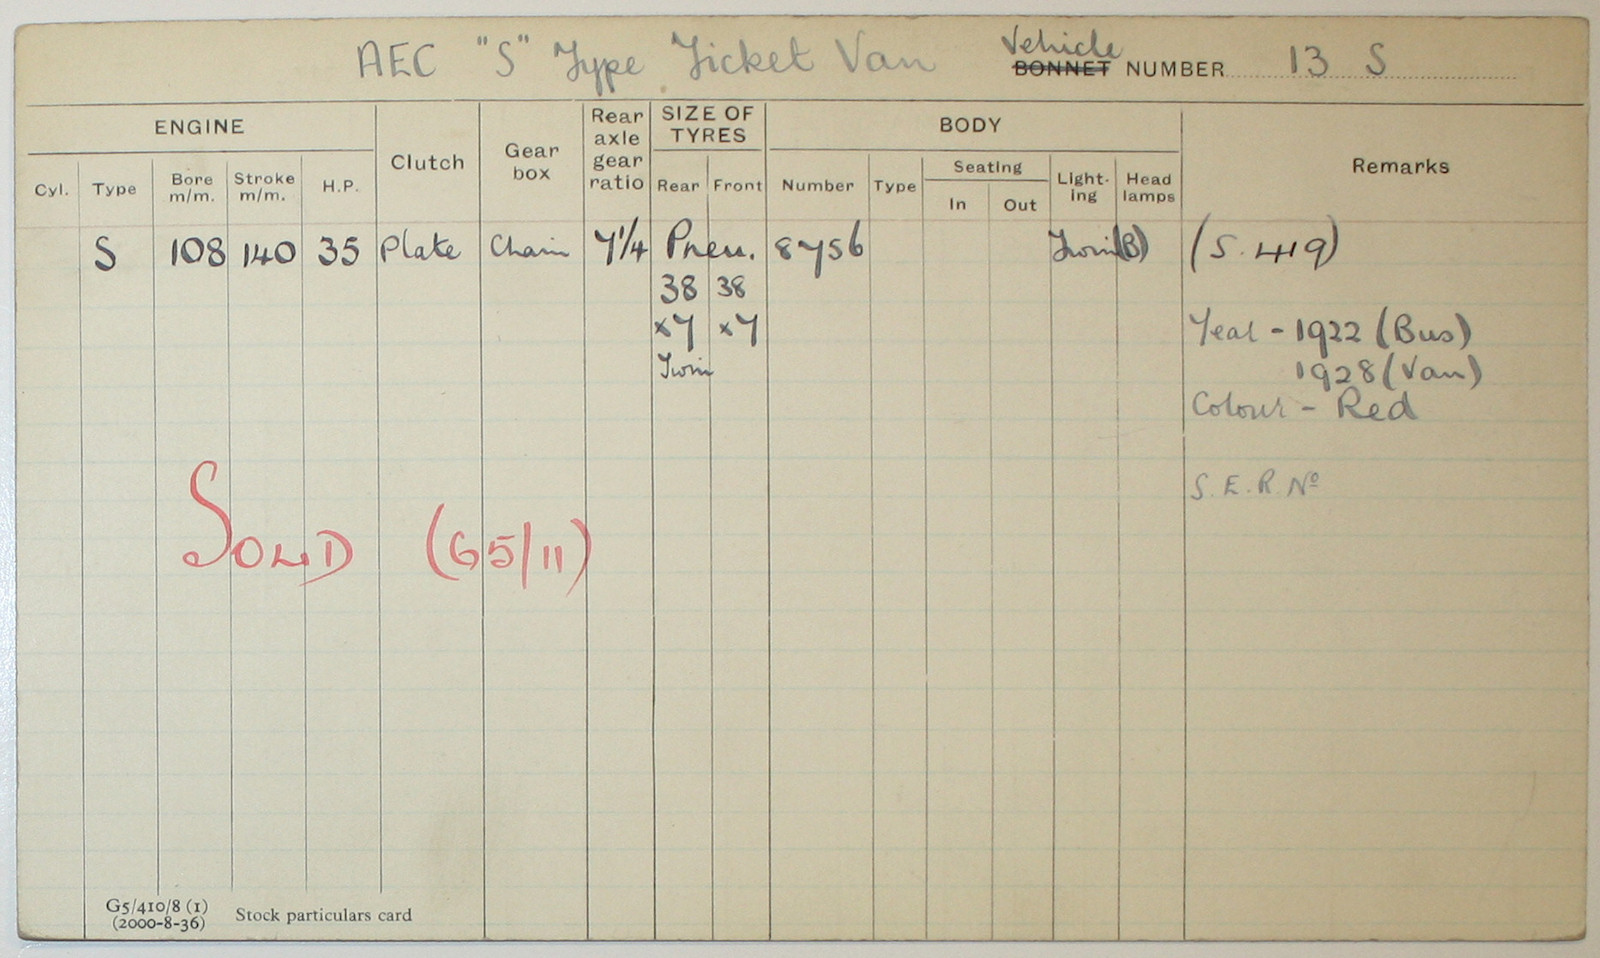 AEC "S" Type Ticket Van Vehicle
BONNET NUMBER 13 S
ENGINE
Clutch
Gear box
Rear axle gear ratio
SIZE OF TYRES
BODY
Remarks
Cyl. Type Bore m/m. Stroke m/m. H.P.
Rear Front
Number Type Seating
In Out
Light-ing
Head lamps
S 108 140 35 Plate Chain 7¼ Pneu. 8756 Twin (B) (S. 419)
38 38
×7 ×7
Twin
Year - 1922 (Bus)
1928 (Van)
Colour - Red
S.E.R. Nº
SOLD (G5/11)
G5/410/8 (1)
(2000-8-36)
Stock particulars card